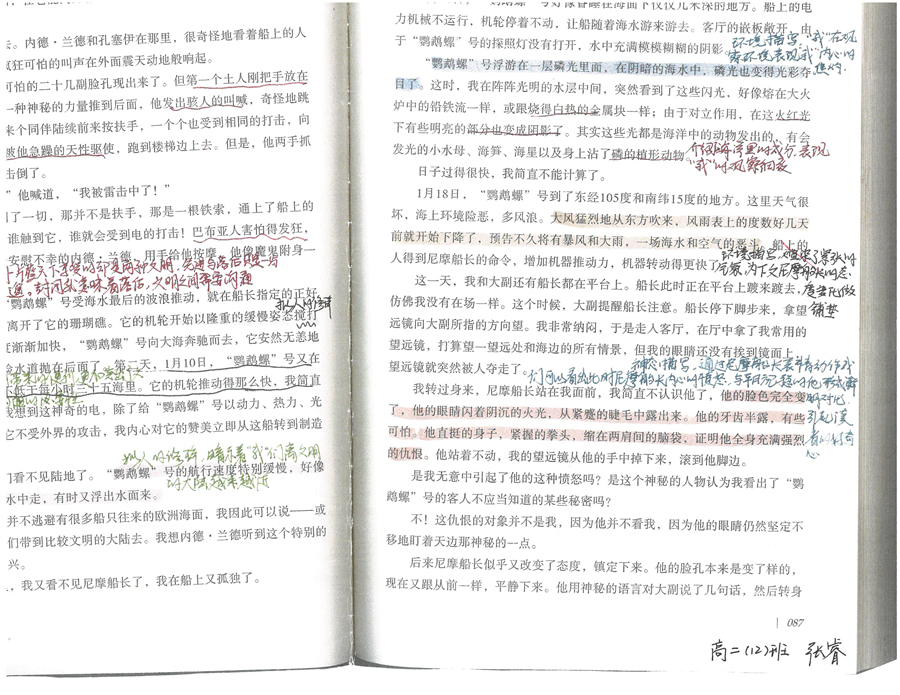 去。内德·兰德和孔塞伊在那里，很奇怪地看着船上的人
疯狂可怕的叫声在外面震天动地般响起。
可怕的二十几副脸孔现出来了。但第一个土人刚把手放在
一种神秘的力量推到后面，他发出骇人的叫喊，奇怪地跳
来个同伴陆续前来按扶手，一个个也受到相同的打击，向
被他急躁的天性驱使，跑到楼梯边上去。但是，他两手抓
击倒了。
”他喊道，“我被雷击中了！”
了一切，那并不是扶手，那是一根铁索，通上了船上的
谁触到它，谁就会受到电的打击！巴布亚人害怕得发狂，
安慰不幸的内德·兰德，用手给他按摩，他像魔鬼附身一
“鹦鹉螺”号受海水最后的波浪推动，就在船长指定的正好
离开了它的珊瑚礁。它的机轮开始以隆重的缓慢姿态搅打
度渐渐加快，“鹦鹉螺”号向大海奔驰而去，它安然无恙地
险水道抛在后面了。第二天，1月10日，“鹦鹉螺”号又在
不低于每小时三十五海里。它的机轮推动得那么快，我简直
我想到这神奇的电，除了给“鹦鹉螺”号以动力、热力、光
它不受外界的攻击，我内心对它的赞美立即从这船转到制造
拟人的修辞，暗示着“我”们离文明
的大陆越来越远
们看不见陆地了。“鹦鹉螺”号的航行速度特别缓慢，好像
水中走，有时又浮出水面来。
并不逃避有很多船只往来的欧洲海面，我因此可以说——或
们带到比较文明的大陆去。我想内德·兰德听到这个特别的
兴。
，我又看不见尼摩船长了，我在船上又孤独了。
力机械不运行，机轮停着不动，让船随着海水游来游去。客厅的嵌板敞开，由
于“鹦鹉螺”号的探照灯没有打开，水中充满模模糊糊的阴影。
“鹦鹉螺”号浮游在一层磷光里面，在阴暗的海水中，磷光也变得光彩夺
目了。这时，我在阵阵光明的水层中间，突然看到了这些闪光，好像熔在大火
炉中的铅铁流一样，或跟烧得白热的金属块一样；由于对立作用，在这火红光
下有些明亮的部分也变成阴影了。其实这些光都是海洋中的动物发出的，有会
发光的小水母、海笋、海星以及身上沾了磷的植形动物。
日子过得很快，我简直不能计算了。
1月18日，“鹦鹉螺”号到了东经105度和南纬15度的地方。这里天气很
坏，海上环境险恶，多风浪。大风猛烈地从东方吹来，风雨表上的度数好几天
前就开始下降了，预告不久将有暴风和大雨，一场海水和空气的恶斗。船上的
人得到尼摩船长的命令，增加机器推动力，机器转动得更快了
这一天，我和大副还有船长都在平台上。船长此时正在平台上踱来踱去，
仿佛我没有在场一样。这个时候，大副提醒船长注意。船长停下脚步来，拿望
远镜向大副所指的方向望。我非常纳闷，于是走入客厅，在厅中拿了我常用的
望远镜，打算望一望远处和海边的所有情景，但我的眼睛还没有挨到镜面上，
望远镜就突然被人夺走了。
我转过身来，尼摩船长站在我面前，我简直不认识他了，他的脸色完全变
了，他的眼睛闪着阴沉的火光，从紧蹙的睫毛中露出来。他的牙齿半露，有些
可怕。他直挺的身子，紧握的拳头，缩在两肩间的脑袋，证明他全身充满强烈
的仇恨。他站着不动，我的望远镜从他的手中掉下来，滚到他脚边。
是我无意中引起了他的这种愤怒吗？是这个神秘的人物认为我看出了“鹦
鹉螺”号的客人不应当知道的某些秘密吗？
不！这仇恨的对象并不是我，因为他并不看我，因为他的眼睛仍然坚定不
移地盯着天边那神秘的一点。
后来尼摩船长似乎又改变了态度，镇定下来。他的脸孔本来是变了样的，
现在又跟从前一样，平静下来。他用神秘的语言对大副说了几句话，然后转身
087
高二(12)班 张睿